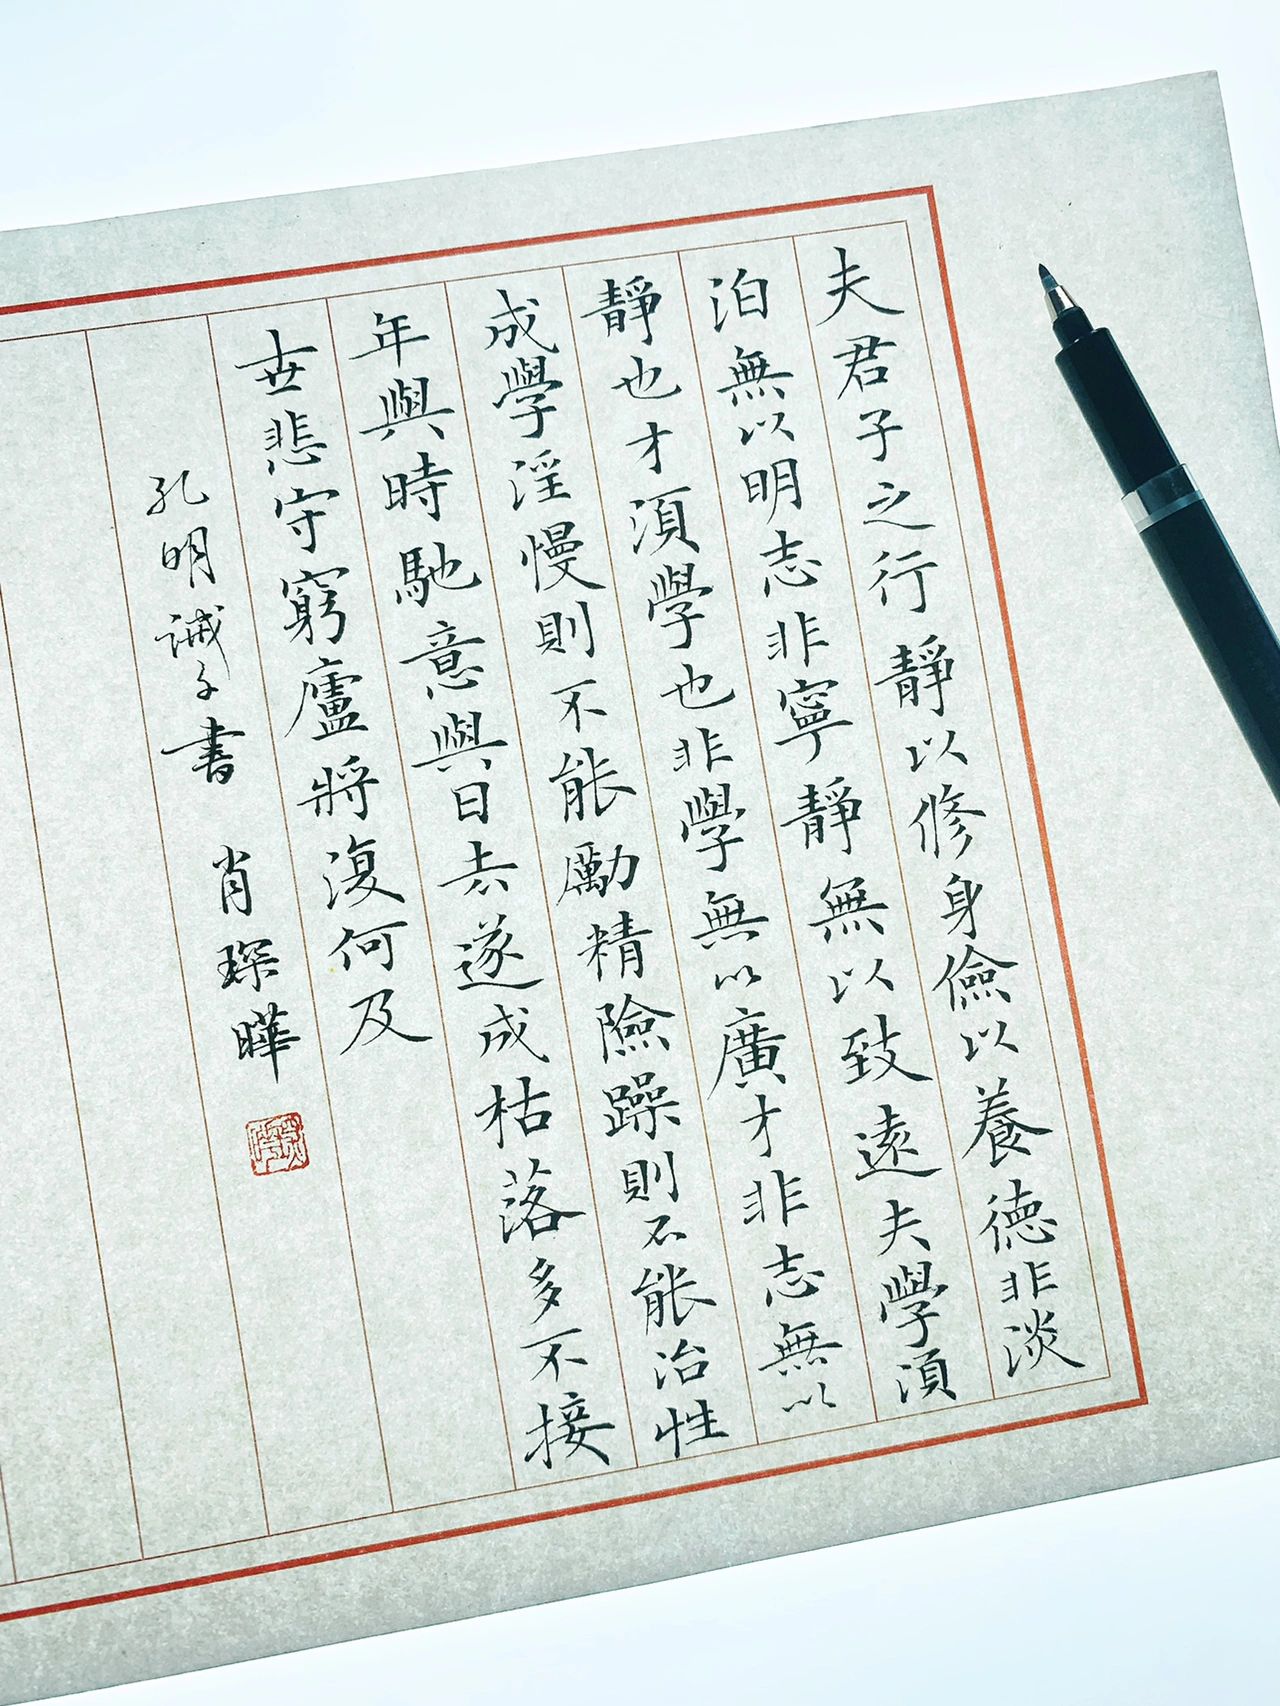 夫君子之行靜以修身儉以養德非淡
泊無以明志非寧靜無以致遠夫學須
靜也才須學也非學無以廣才非志無以
成學淫慢則不能勵精險躁則不能治性
年與時馳意與日去遂成枯落多不接
世悲守窮廬將復何及
孔明誡子書 肖琛曄